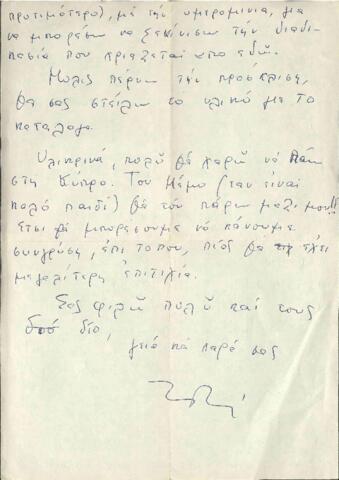 προτιμότερο), με την ημερομινία, για
να μπορέσω να ξεκίνισω την διαδι-
κασία που χριάζεται απο εδώ.
Μόλις πάρω την πρόσκλιση,
θα σας στείλω το υλικό με το
κατάλογο.
Υλικρινά, πολύ θά χαρώ νά πάω
στη Κύπρο. Τον Μέμο (ταν είναι
καλό παιδί) θά τόν πάρω μαζί μου!!
έτσι θά μπορέσουμε νά κάνουμε
συνγρύση, έπι τοπου, πιός θα έχει
μεγαλίτερη έπιτιχία.
Σας φιλώ πολύ καί τους
δυό,
γειά καί χαρά σας